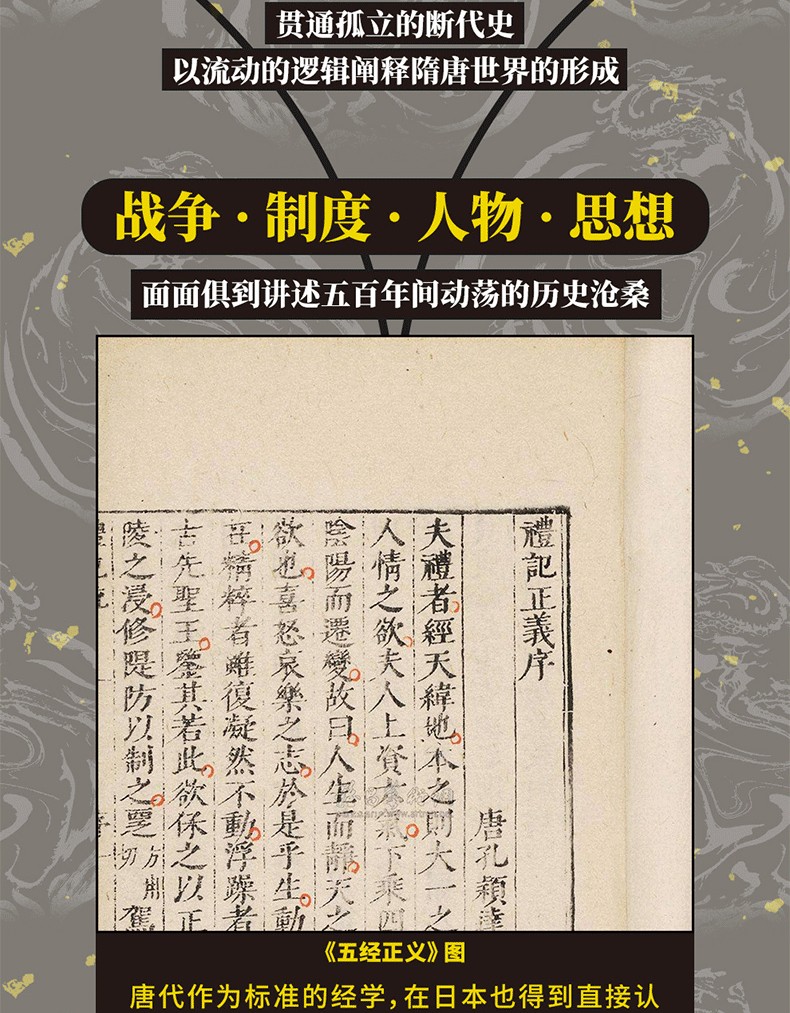 贯通孤立的断代史
以流动的逻辑阐释隋唐世界的形成
战争·制度·人物·思想
面面俱到讲述五百年间动荡的历史沧桑
禮記正義序
唐孔穎達
夫禮者經天緯地本之則大一之
人情之欲夫人上資 下乘四
陰陽而遷變故曰人生而靜天之
欲也喜怒哀樂之志於是乎生動
在精粹者雖復凝然不動浮躁者
古先聖王鑒其若此欲保之以正
陵之浸修隄防以制之
駕
《五经正义》图
唐代作为标准的经学,在日本也得到直接认